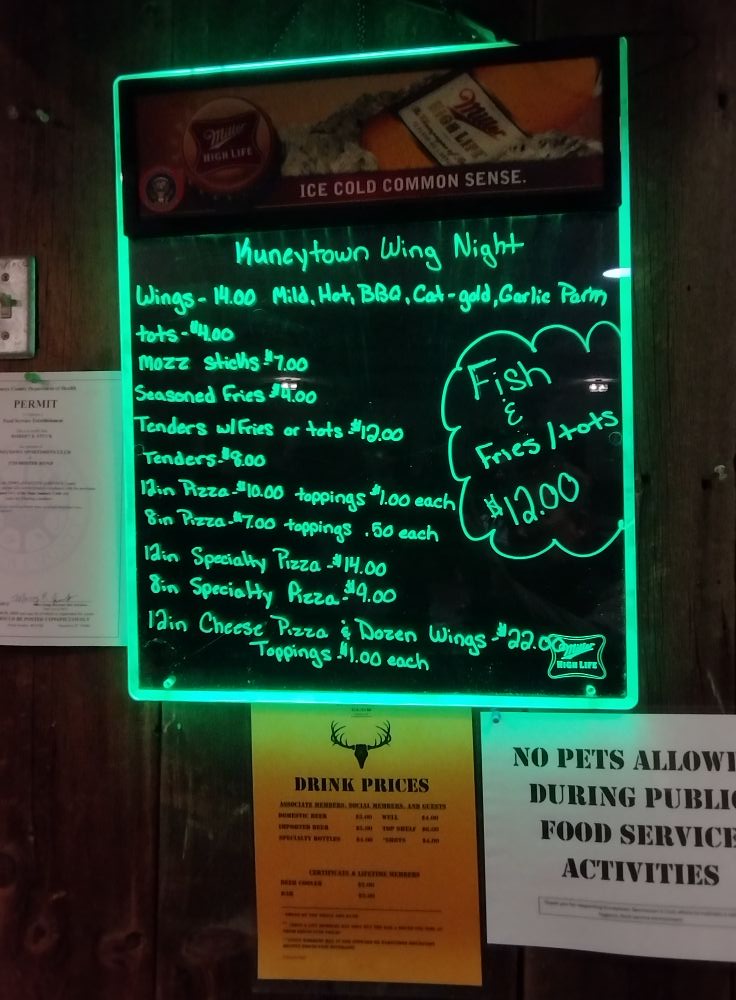 Miller
HIGH LIFE
Miller
HIGH LIFE
ICE COLD COMMON SENSE.
Kuneytown Wing Night
Wings - 14.00 Mild, Hot, BBQ, Cat-gold, Garlic Parm
tots - $4.00
Mozz sticks $7.00
Seasoned Fries $4.00
Tenders w/Fries or tots $12.00
Tenders - $8.00
12in Pizza - $10.00 toppings $1.00 each
8in Pizza - $7.00 toppings .50 each
12in Specialty Pizza - $14.00
8in Specialty Pizza - $9.00
12in Cheese Pizza & Dozen Wings - $22.00
Toppings $1.00 each
Fish
&
Fries / tots
$12.00
Miller
HIGH LIFE
PERMIT
DRINK PRICES
ASSOCIATE MEMBERS, SOCIAL MEMBERS, AND GUESTS
DOMESTIC BEER $3.00 WELL $4.00
IMPORTED BEER TOP SHELF $6.00
SPECIALTY BOTTLES $4.00 *SHOTS $4.00
CERTIFICATE & LIFETIME MEMBERS
BEER
BAR
NO PETS ALLOWE
DURING PUBLIC
FOOD SERVICE
ACTIVITIES